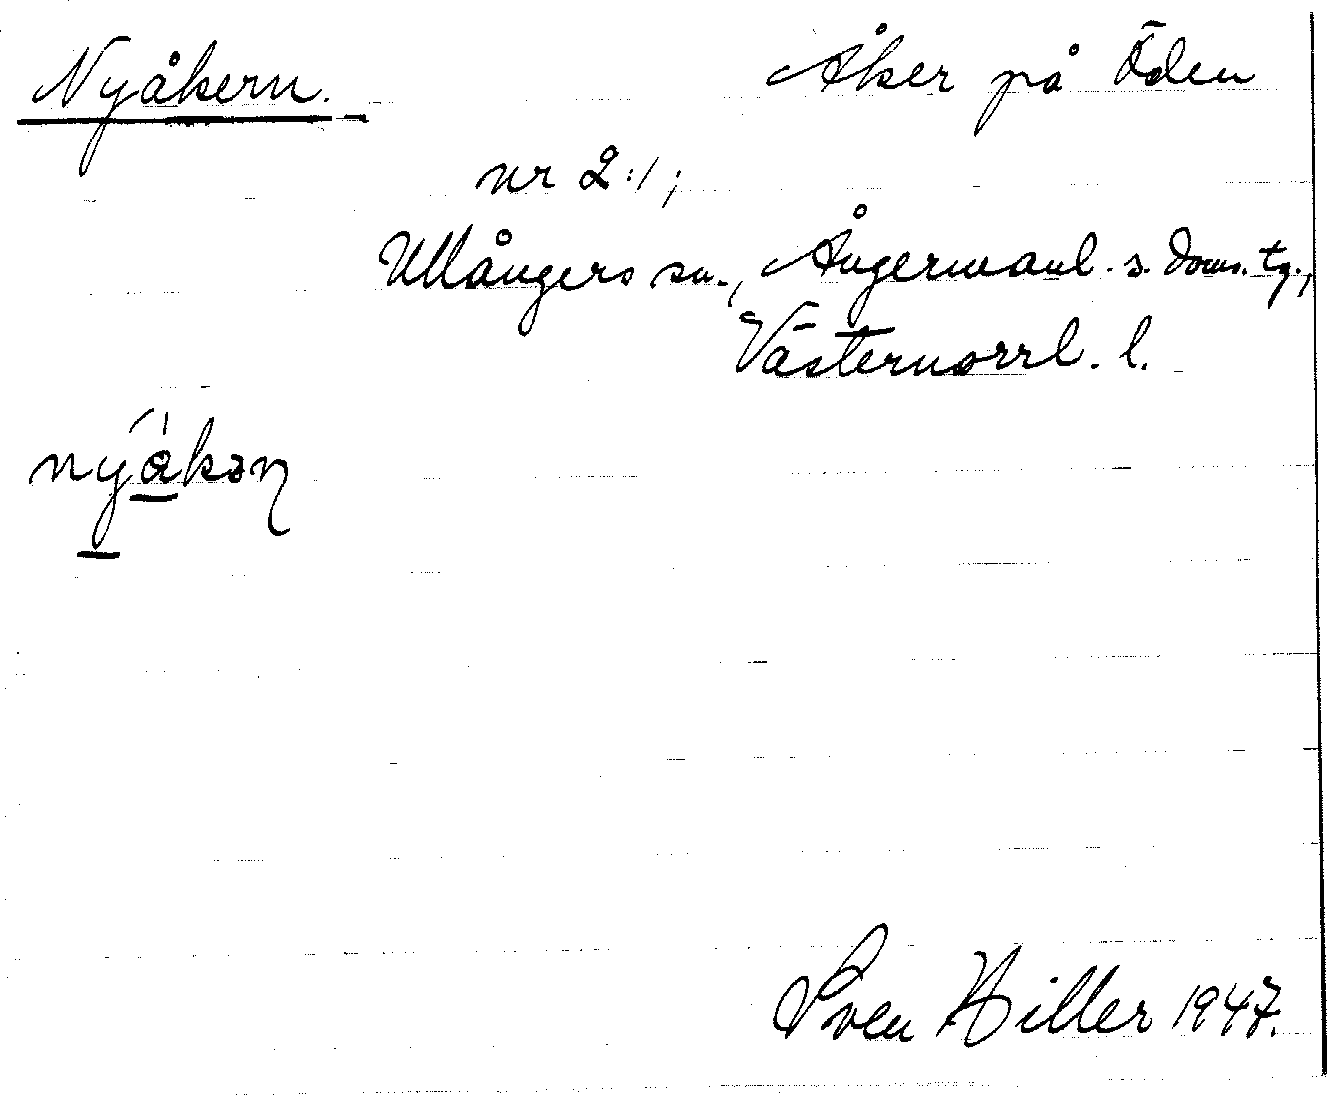 Nyåkern. Åker på Öden
nr 2:1;
Ullångers sn., Ångermanl. s. doms. tg.,
Västernorrl. l.
nyåkəɳ
Sven Hiller 1947.